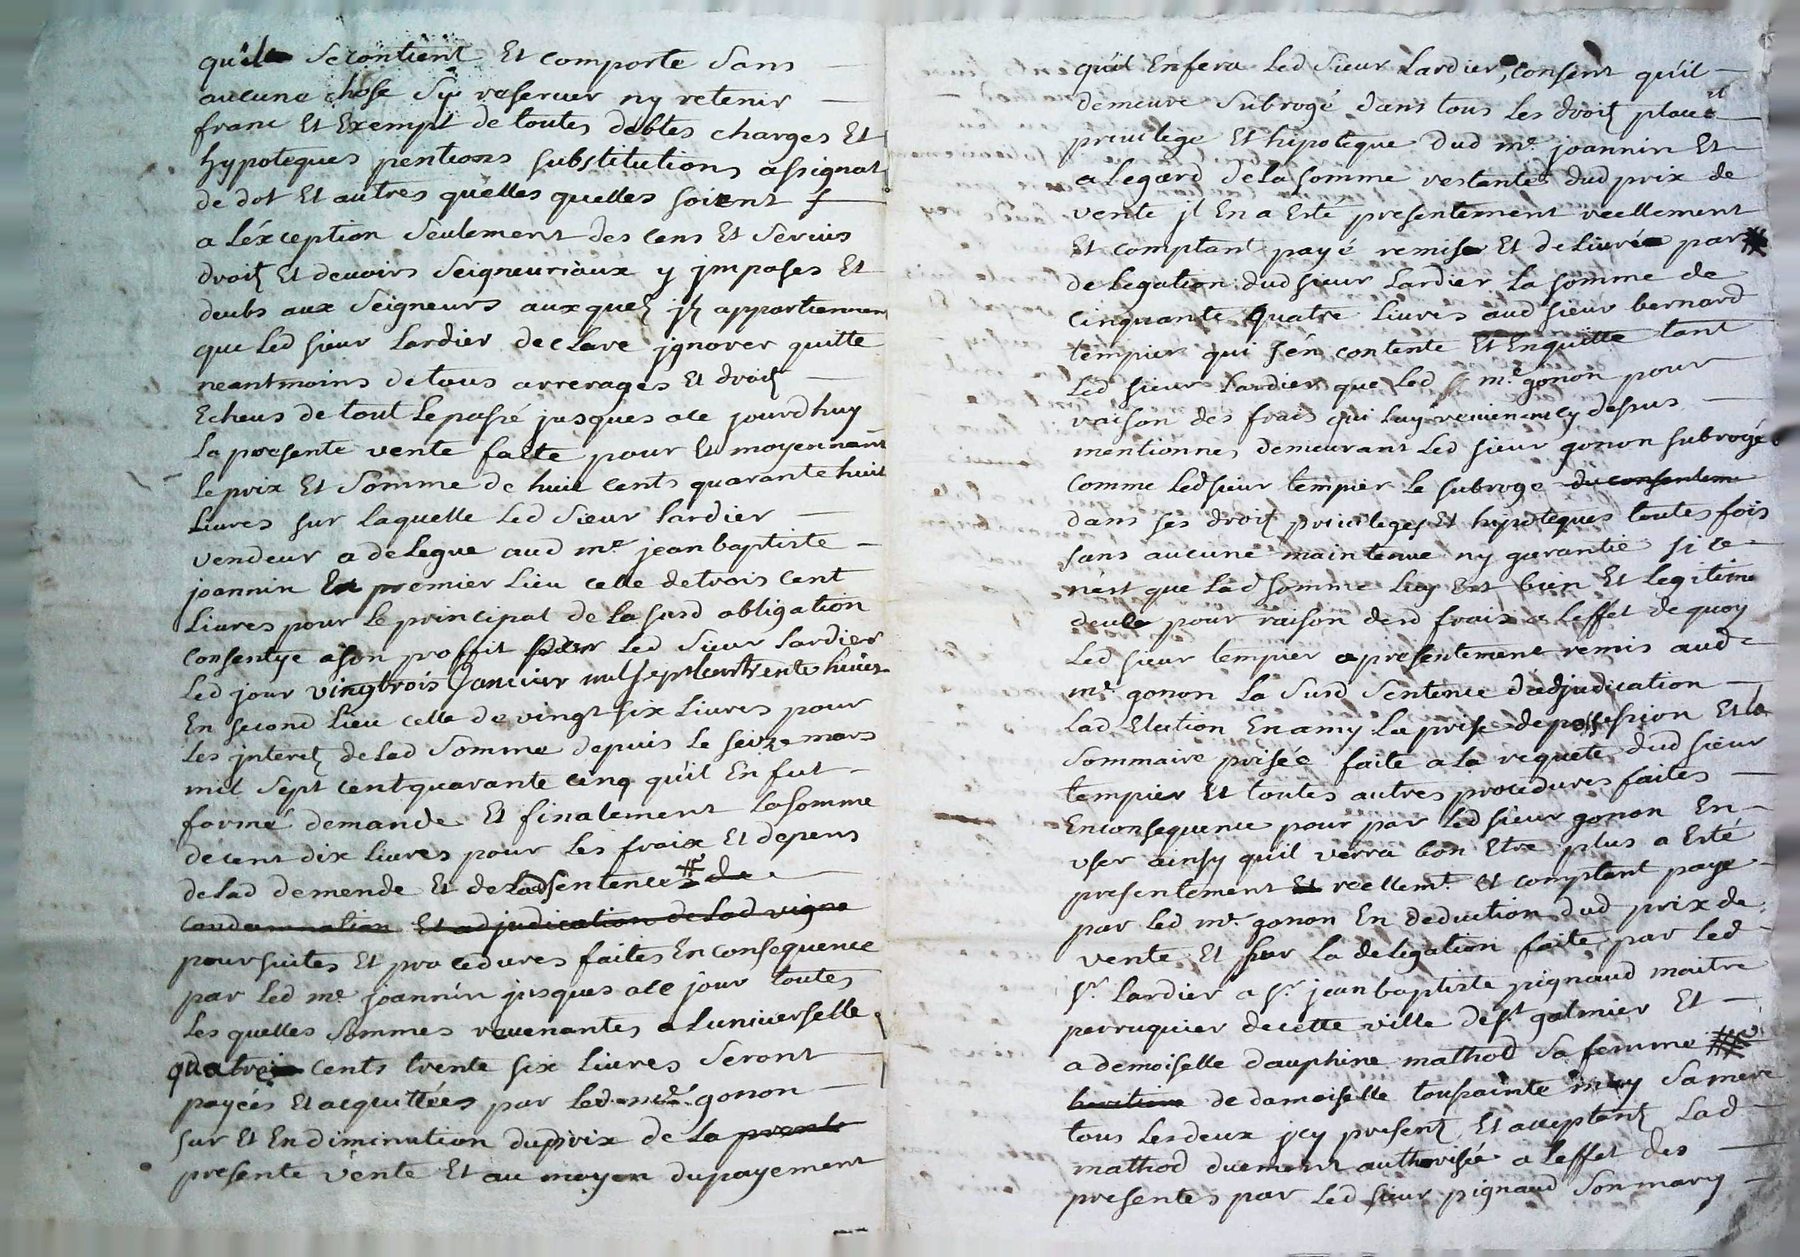 qu'il se contient Et comporte Sans
aucune chose Sy reserver ny retenir
franc Et Exempt de toutes debtes charges Et
hypoteques pentions substitutions assignat
de dot Et autres quelles quelles soient
a Léxception Seulement des cens Et Servis
droitz Et devoirs Seigneuriaux y jmposes Et
deubs aux Seigneurs auxquelz jlz appartiennent
que Led sieur Lardier declare jgnorer quitte
neantmoins de tous arrerages Et droitz
Echeus de tout Le passé jusques a ce jourdhuy
La presente vente faite pour Et moyennant
Le prix Et Somme de huit cents quarante huit
Livres sur laquelle Led Sieur Lardier
vendeur a delegue aud me jean baptiste
joannin En premier Lieu celle de trois cent
Livres pour Le principal de La susd obligation
consentye a son proffit par Led Sieur Lardier
Led jour vingt trois Janvier mil sept cent trente huit
En second Lieu celle de vingt six Livres pour
Les jnteretz de Lad Somme depuis Le seize mars
mil Sept cent quarante cinq qu'il En fut
formé demande Et finalement La Somme
de cent dix Livres pour Les fraix Et depens
de Lad demende Et de Lad sentence de
condamnation Et adjudication de Lad vigne
poursuites Et procedures faites En consequence
par Led me joannin jusques a ce jour toutes
Les quelles Sommes revenantes a Luniverselle
quatre cents trente six Livres Seront
payées Et acquittées par Led me gonon
sur Et En diminution du prix de La
presente vente Et au moyen du payement
qu'il En fera Led Sieur Lardier, consent qu'il
demeure Subrogé dans tous Les droitz place
privilege Et hipoteque dud me joannin Et
a Legard de La somme restante dud prix de
vente jl En a Esté presentement reellement
Et comptant payé remise Et delivrée par
delegation dud sieur Lardier La somme de
cinquante quatre Livres aud sieur bernard
tempier qui s'en contente Et En quitte tant
Led sieur Lardier que Led me gonon pour
raison des frais qui Luy reviennent cy dessus
mentionnes demeurant Led sieur gonon subrogé
comme Led sieur tempier Le subroge du consentem
dans ses droitz privileges Et hypoteques toutes fois
sans aucune maintenue ny garantie si ce
nest que Lad somme Luy Est bien Et Legitime
deube pour raison desd fraix a Leffet de quoy
Led sieur tempier a presentement remis aud
me gonon La Susd Sentence dadjudication
Lad Election En amy La prise de possession Et le
Sommaire prisée faite a La requete dud sieur
tempier Et toutes autres procedures faites
En consequence pour par Led sieur gonon En
vser ainsy quil verra bon Etre plus a Esté
presentement Et reellemt Et comptant payé
par Led me gonon En deduction dud prix de
vente Et sur La delegation faite par Led
sr Lardier a sr jean baptiste pignaud maitre
perruquier de cette ville de st galmier Et
a demoiselle dauphine mathod Sa femme
heritiere de damoiselle toussainte mey Sa mere
tous Les deux jcy presentz Et acceptantz Lad
mathod duement authorisée a Leffet des
presentes par Led sieur pignaud Son mary